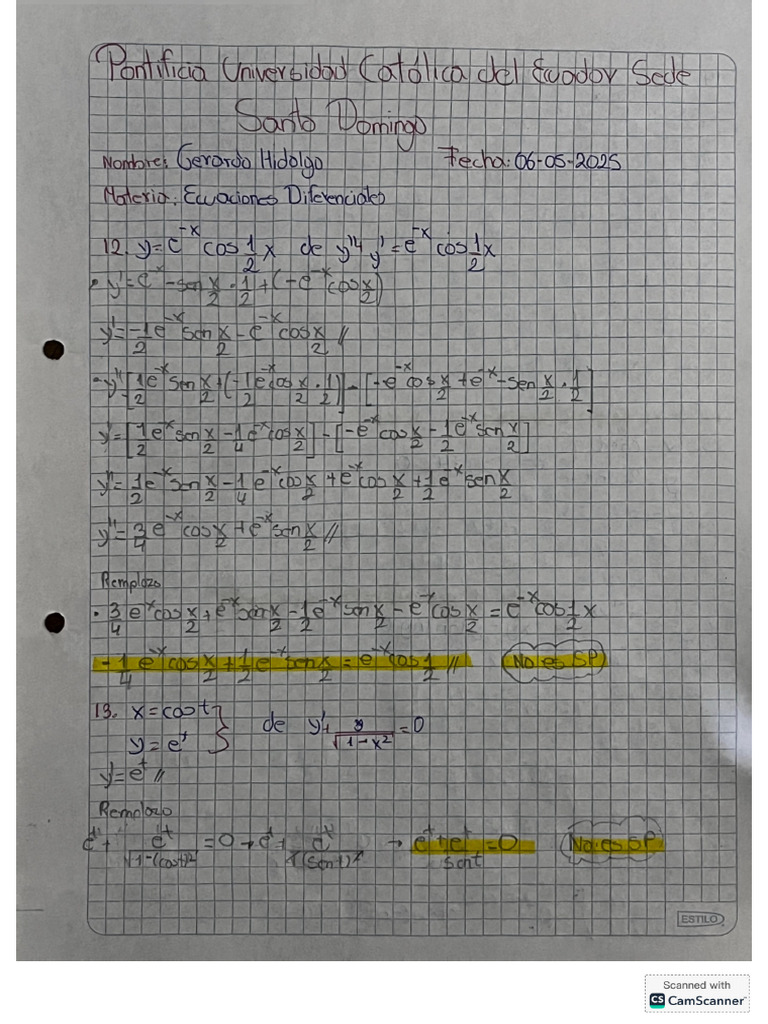 Pontificia Universidad Católica del Ecuador Sede
Santo Domingo
Nombre: Gerardo Hidalgo Fecha: 06-05-2025
Materia: Ecuaciones Diferenciales
12. y=e^-x cos 1/2 x de y''+y'=e^-x cos 1/2 x
• y'=e^-x -sen x/2 · 1/2 + (-e^-x cos x/2)
y'=-1/2 e^-x sen x/2 - e^-x cos x/2 //
• y''[1/2 e^-x sen x/2 + (-1/2 e^-x cos x/2 · 1/2)] - [-e^-x cos x/2 + e^-x -sen x/2 · 1/2]
y''=[1/2 e^-x sen x/2 - 1/4 e^-x cos x/2] - [-e^-x cos x/2 - 1/2 e^-x sen x/2]
y''=1/2 e^-x sen x/2 - 1/4 e^-x cos x/2 + e^-x cos x/2 + 1/2 e^-x sen x/2
y''=3/4 e^-x cos x/2 + e^-x sen x/2 //
Remplazo
• 3/4 e^-x cos x/2 + e^-x sen x/2 - 1/2 e^-x sen x/2 - e^-x cos x/2 = e^-x cos 1/2 x
-1/4 e^-x cos x/2 + 1/2 e^-x sen x/2 = e^-x cos 1/2 // No es SP
13. x=cos t } de y'+ y/√(1-x²) =0
y=e^t
y'=e^t //
Remplazo
e^t + e^t/√(1-(cos t)²) =0 → e^t + e^t/√(sen t)² → e^t + e^t/sen t =0 No es SP
ESTILO
Scanned with
CS CamScanner